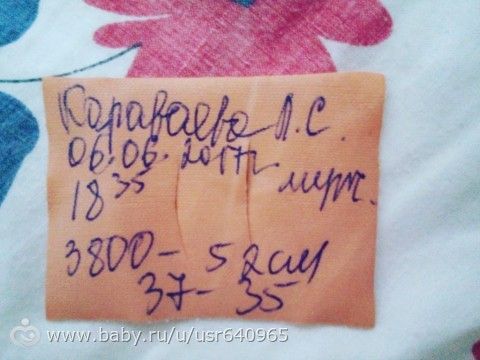 Караваева Л.С.
06.06.2017г
18 35
3800 - 52см
37 - 35
www.baby.ru/u/usr640965